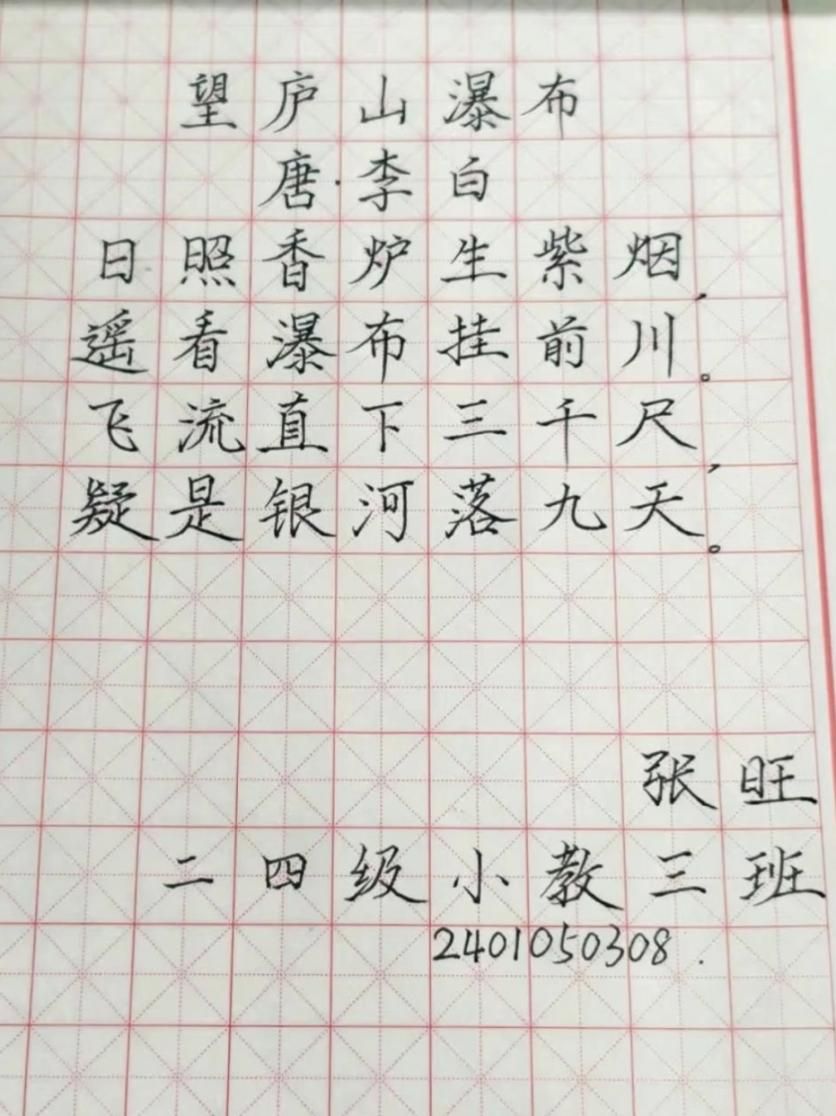 望庐山瀑布
唐·李白
日照香炉生紫烟，
遥看瀑布挂前川。
飞流直下三千尺，
疑是银河落九天。
张旺
二四级小教三班
2401050308.